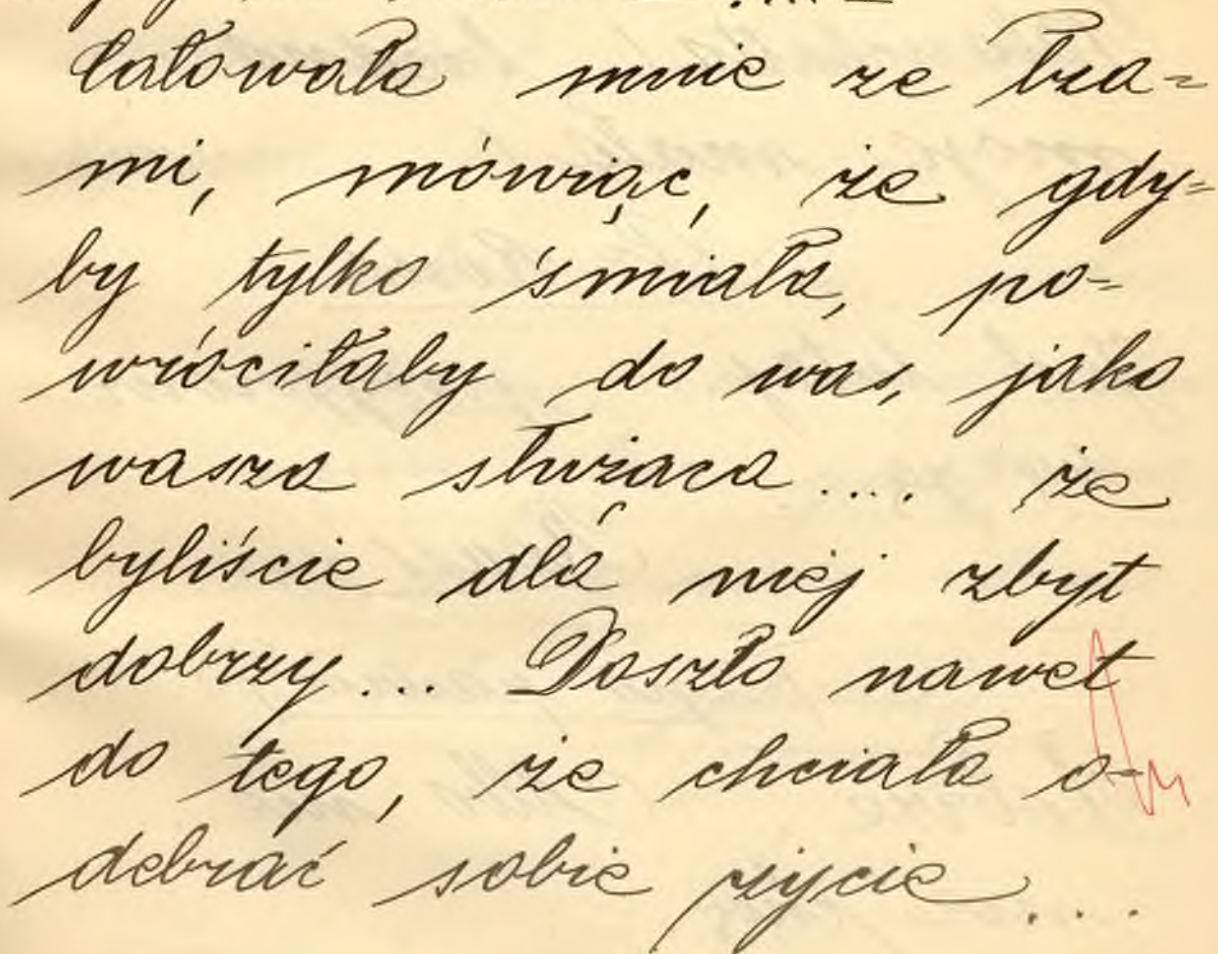 Całowała mnie ze łza=
mi, mówiąc, że gdy=
by tylko śmiała, po-
wróciłaby do was, jako
wasza służąca.... że
byliście dla niej zbyt
dobrzy... Doszło nawet
do tego, że chciała o-
debrać sobie życie....